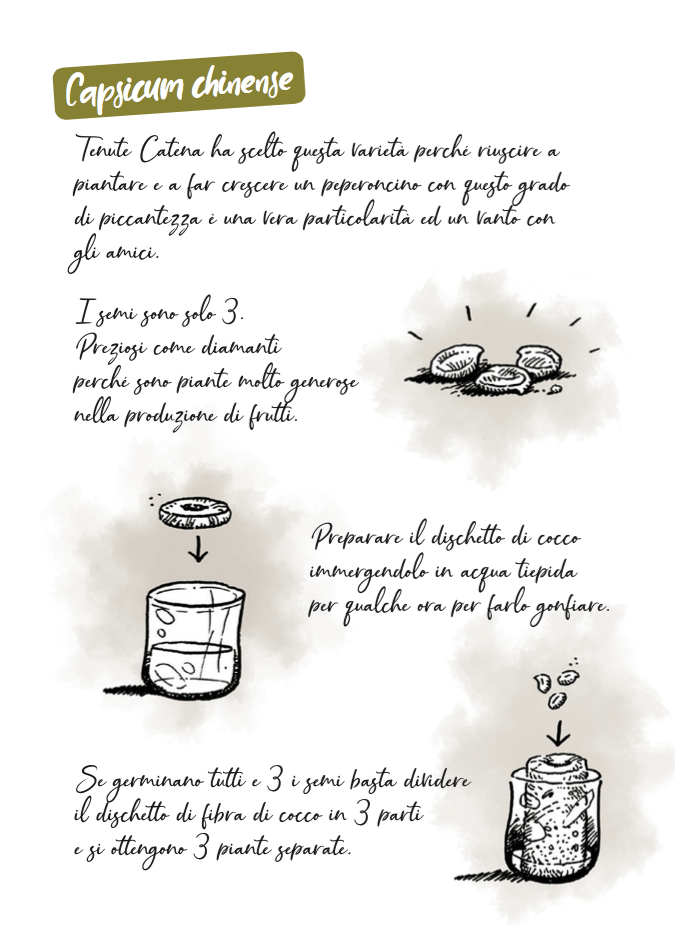 Capsicum chinense
Tenute Catena ha scelto questa varietà perché riuscire a
piantare e a far crescere un peperoncino con questo grado
di piccantezza è una vera particolarità ed un vanto con
gli amici.
I semi sono solo 3.
Preziosi come diamanti
perché sono piante molto generose
nella produzione di frutti.
Preparare il dischetto di cocco
immergendolo in acqua tiepida
per qualche ora per farlo gonfiare.
Se germinano tutti e 3 i semi basta dividere
il dischetto di fibra di cocco in 3 parti
e si ottengono 3 piante separate.